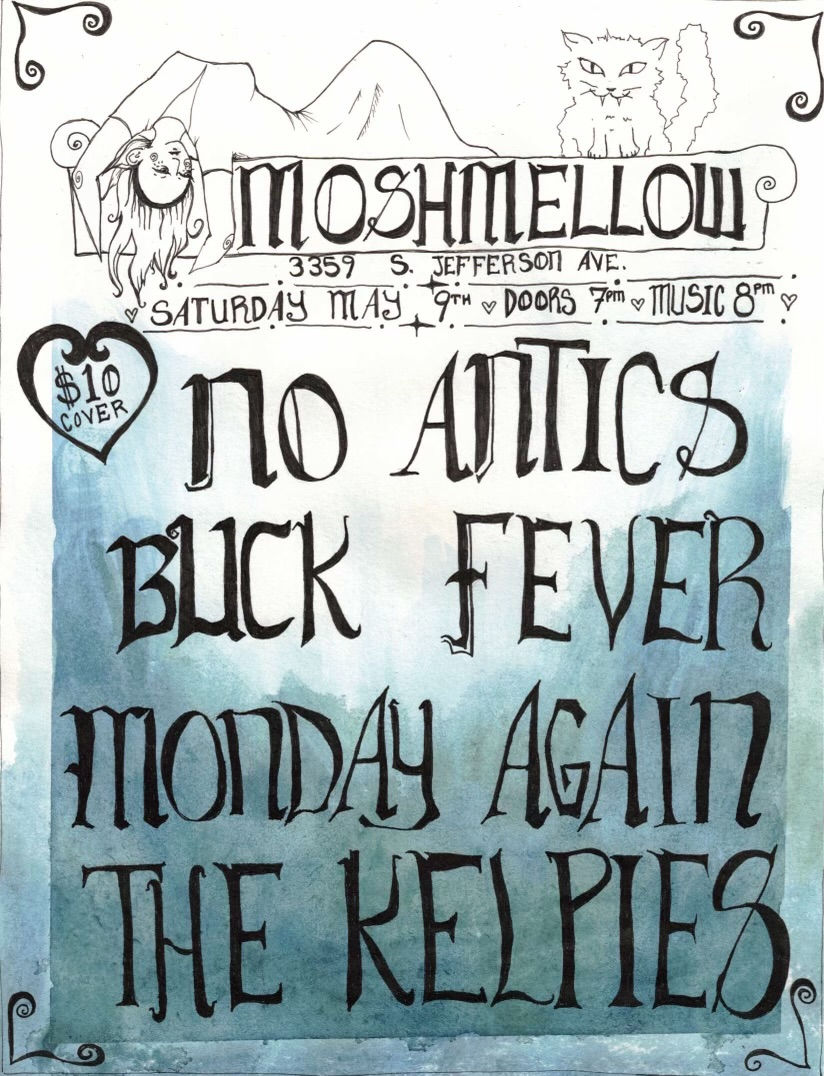 MOSHMELLOW
3359 S. JEFFERSON AVE.
SATURDAY MAY 9TH ♡ DOORS 7pm ♡ MUSIC 8pm ♡
$10
COVER
NO ANTICS
BUCK FEVER
MONDAY AGAIN
THE KELPIES